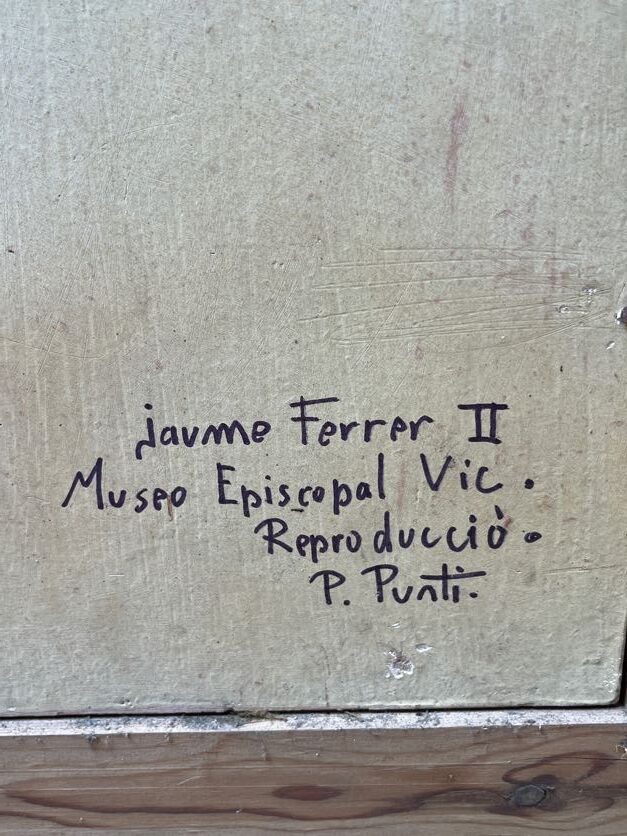 Jaume Ferrer II
Museo Episcopal Vic.
Reproducciò.
P. Punti.